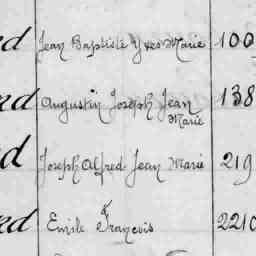 Jean Baptiste Yves Marie 100
Augustin Joseph Jean 138
Marie
Joseph Alfred Jean Marie 219
Emile François 2210